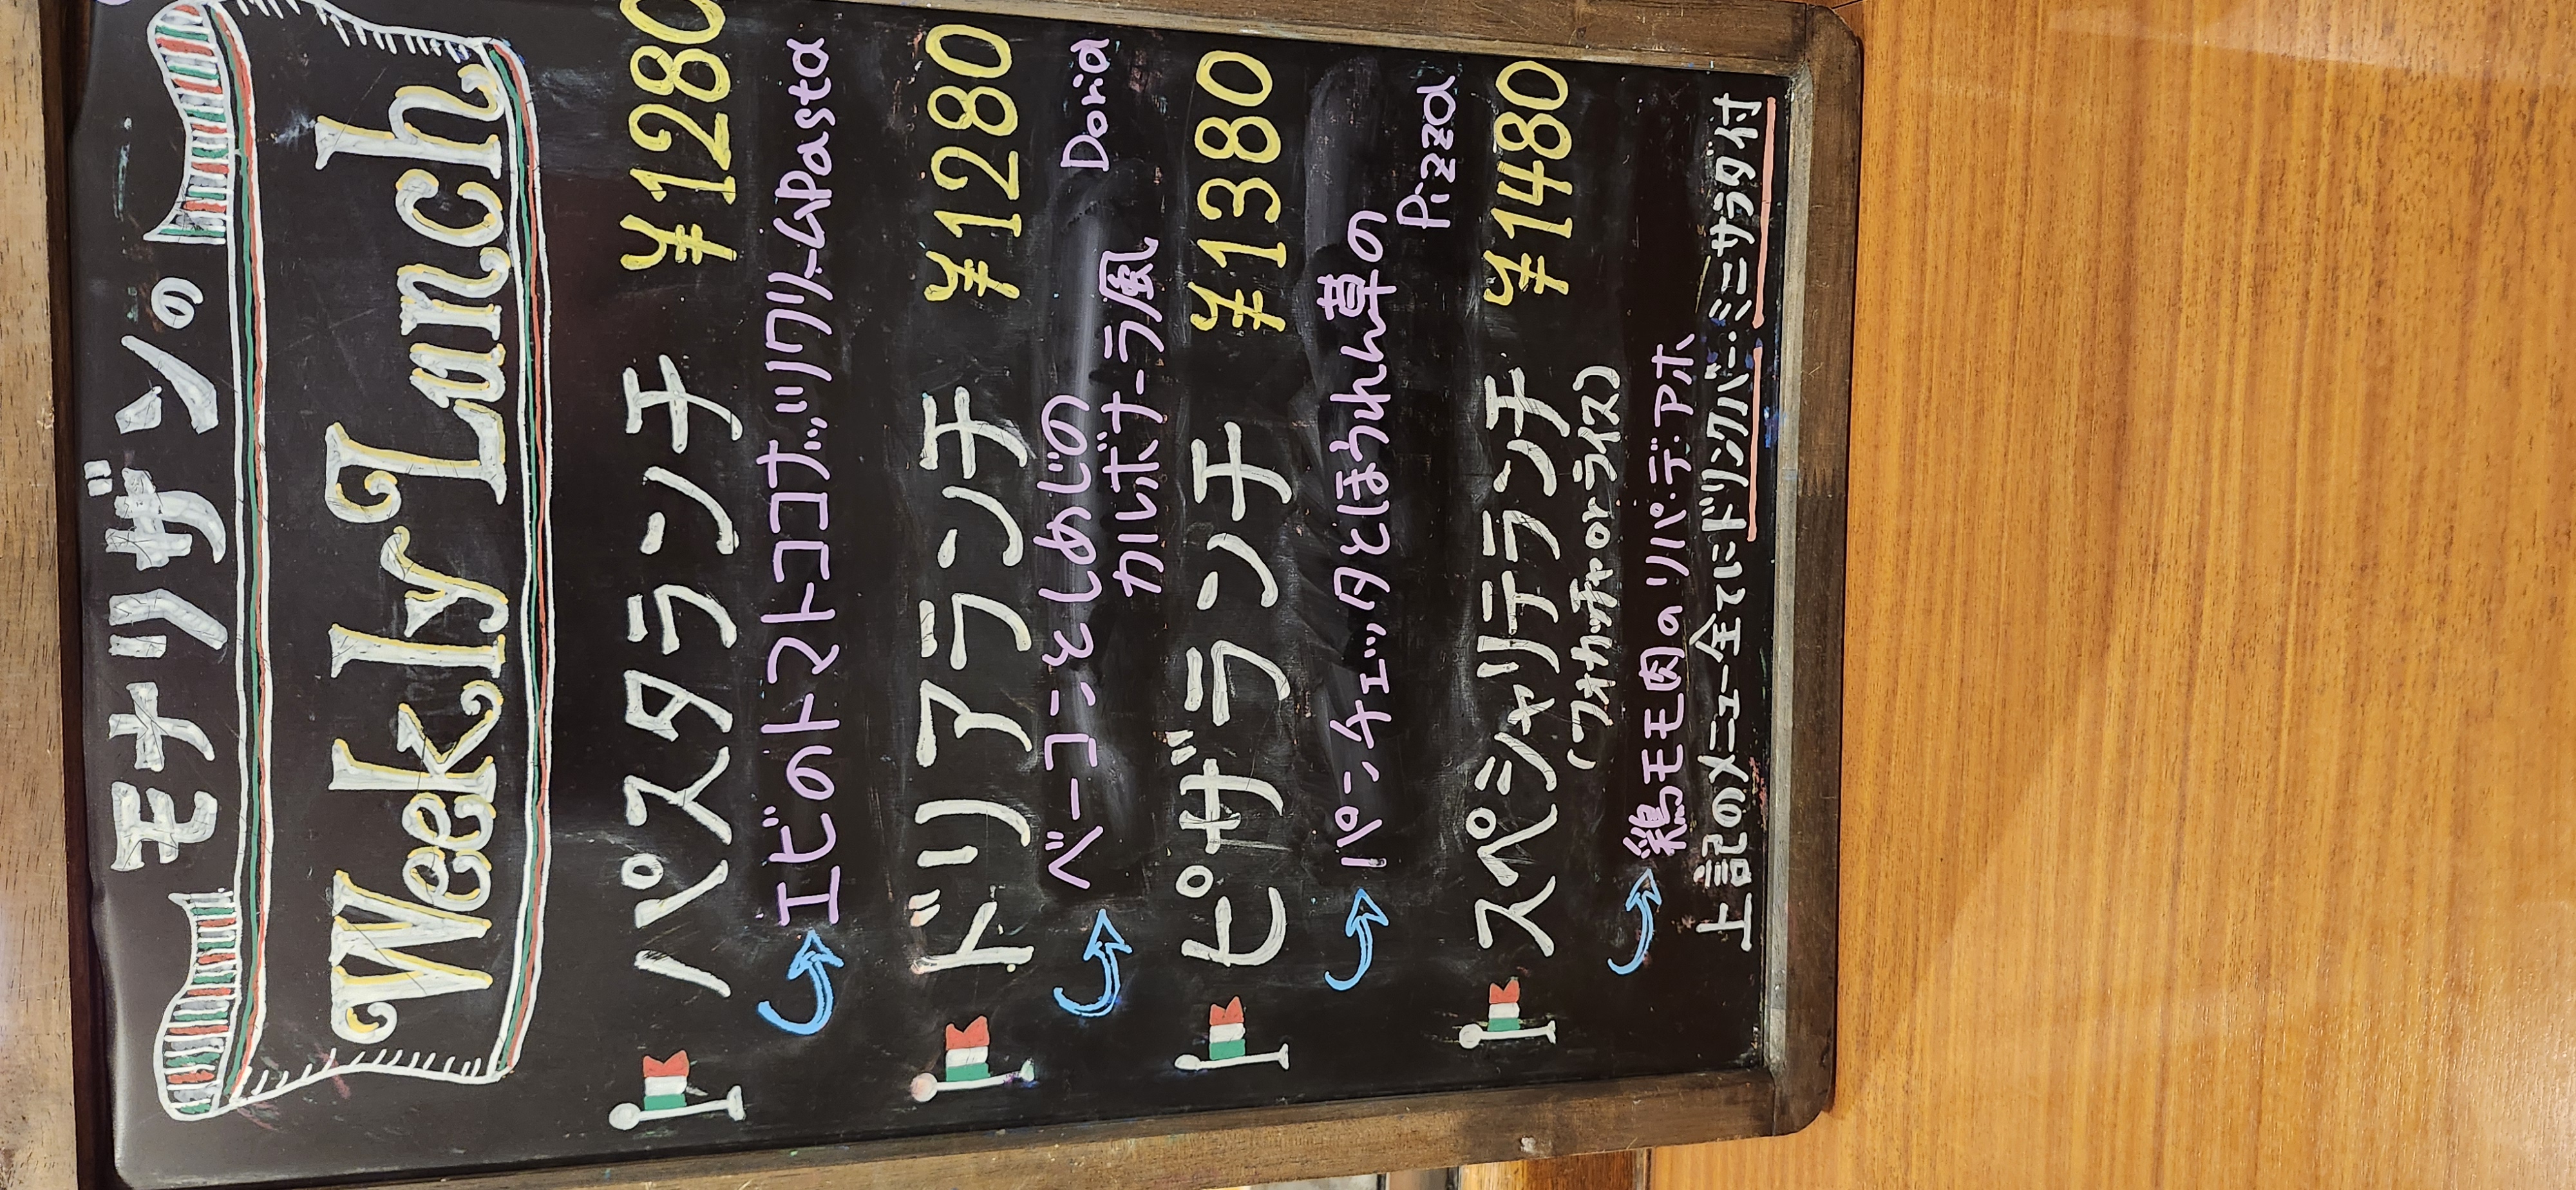 モナリザンの
Weekly Lunch
パスタランチ ¥1280
エビのトマトココナッツクリームPasta
ドリアランチ ¥1280
ベーコンとしめじの
カルボナーラ風 Doria
ピザランチ ¥1380
パンチェッタとほうれん草の
Pizza
スペシャリテランチ ¥1480
(フォカッチャorライス)
鶏モモ肉のリパ・デ・アホ
上記のメニュー全てにドリンクバー・ミニサラダ付